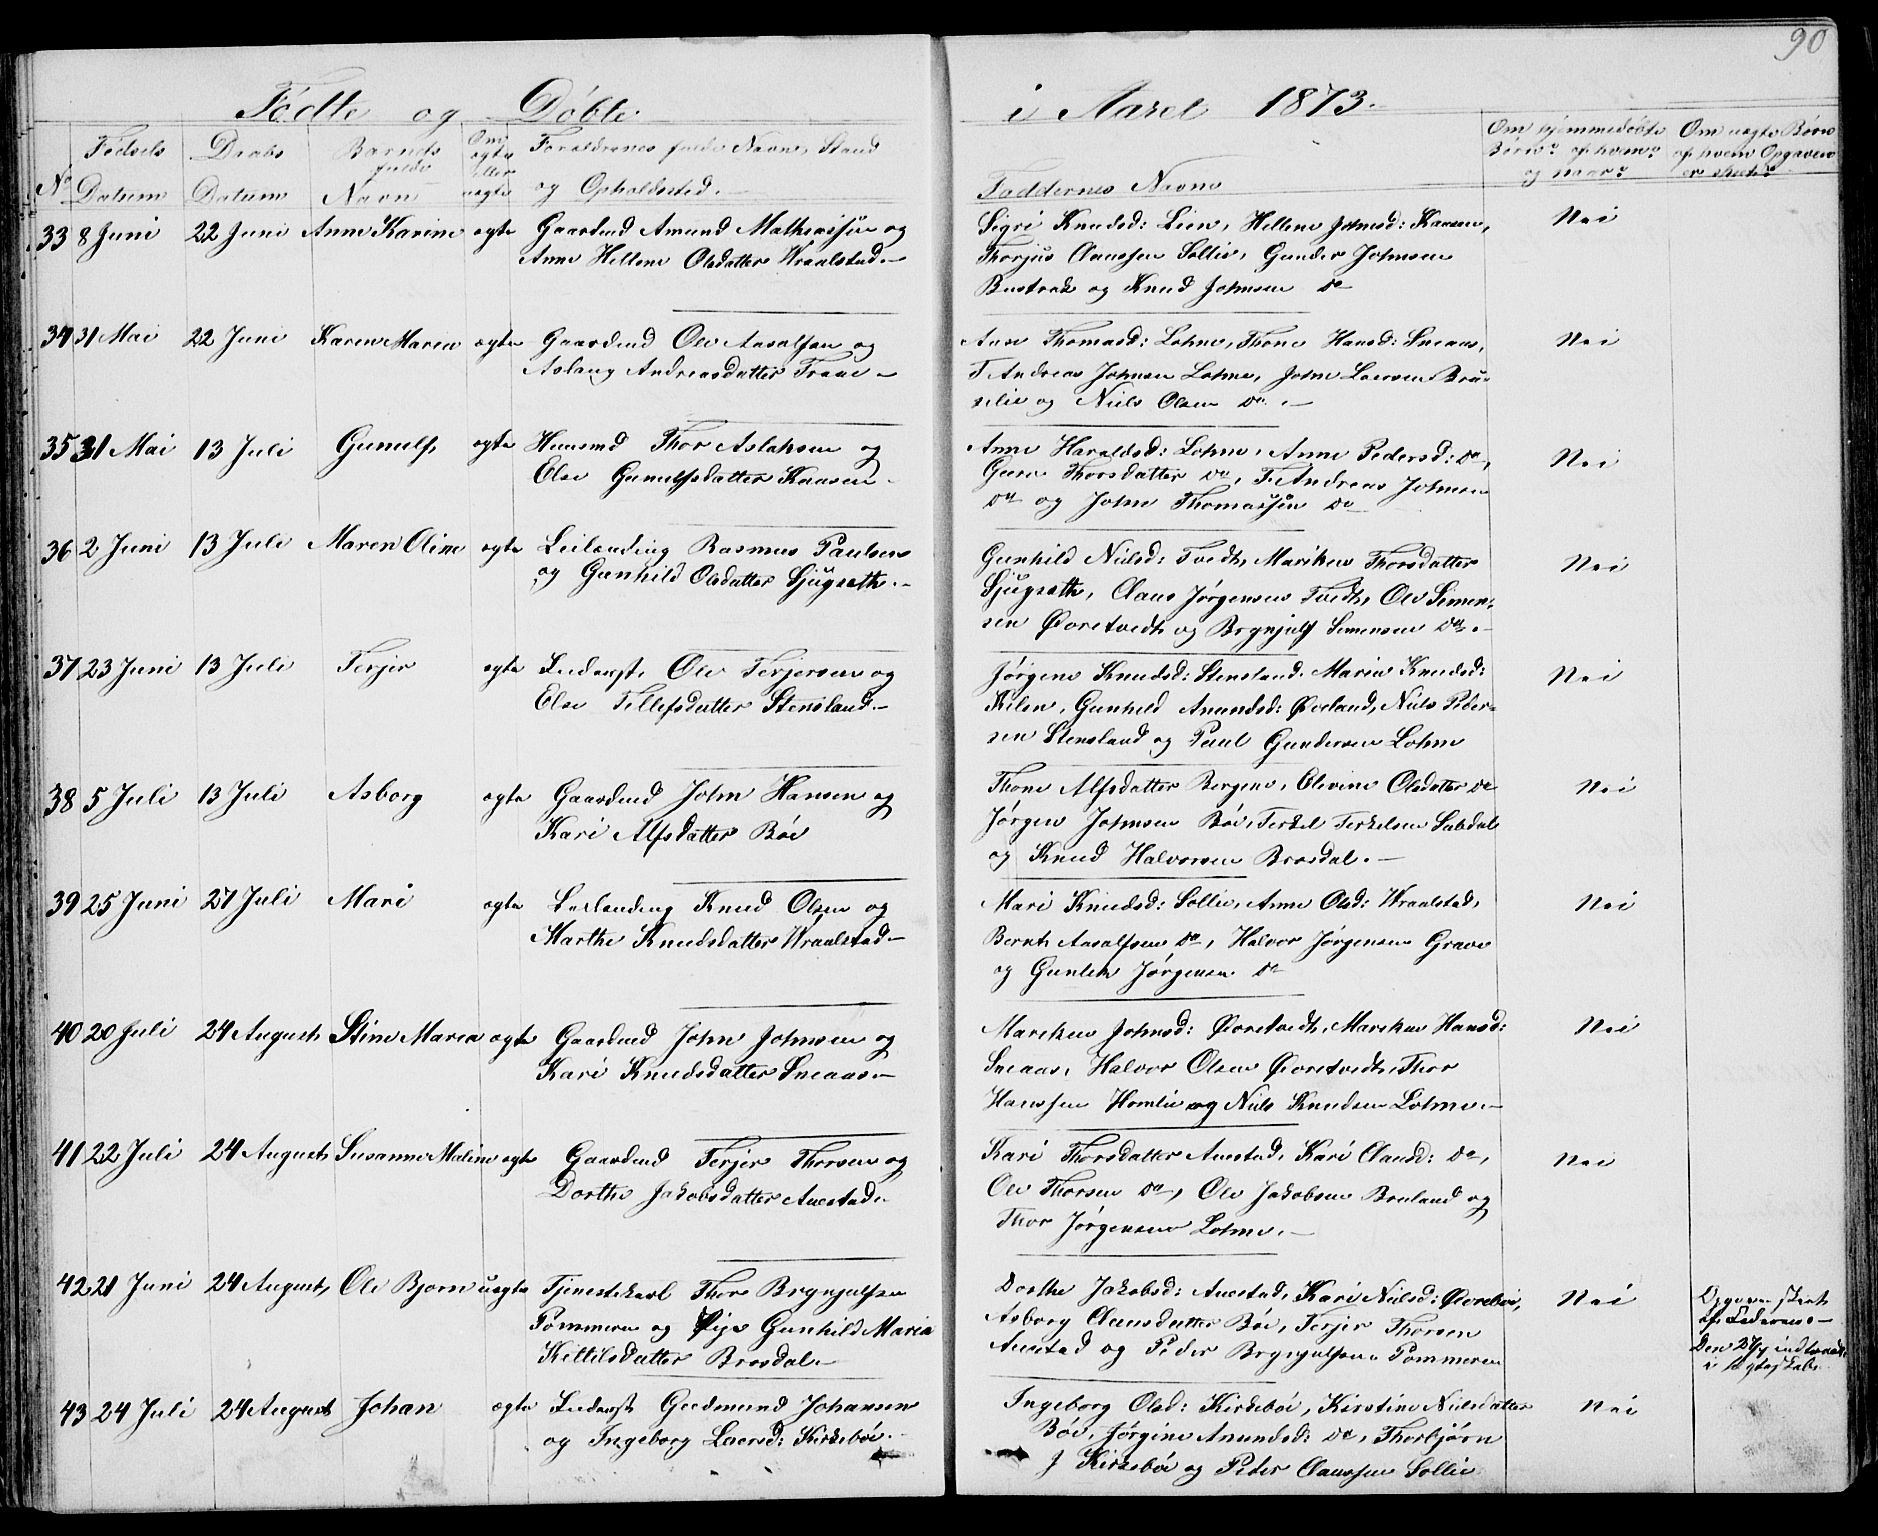 90
Fødte og Døbte i Aaret 1873.
No
Fødsels Datum
Daabs Datum
Barnets fulde Navn
Om ægte eller uægte
Forældrenes fulde Navne, Stand og Opholdssted.
Faddernes Navne
Om hjemmedøbte Børn: af hvem og naar?
Om uægte Børn af hvem Opgaven er skeet?
33 8 Juni 22 Juni Anne Karine ægte Gaardmd Amund Mathiassen og
Anne Hellene Olsdatter Wraalstad.—
Sigri Knudsd: Lien, Hellene Johnsd: Kaasen,
Thorjus Claussen Sollie, Gunder Johnsen
Bustrak og Knud Johnsen Do
Nei
34 31 Mai 22 Juni Karen Maria ægte Gaardmd Ole Aasalfsen og
Aslaug Andreasdatter Traae—
Anne Thomasd: Lohne, Thone Hansd: Sneaas,
T. Andreas Johnsen Lohne, John Larsen Bru-
selie og Niels Olsen Do.—
Nei
35 31 Mai 13 Juli Gunulf ægte Huusmd Thor Aslaksen og
Else Gunulfsdatter Kaasen.
Anne Haraldsd: Lohne, Anne Pedersd: Do,
Gune Thorsdatter Do, T. Andreas Johnsen
Do og John Thomassen Do
Nei
36 2 Juni 13 Juli Maren Oline ægte Leilending Rasmus Paulsen
og Gunhild Olsdatter Ljugseth.—
Gunhild Nielsd: Tvedt, Mariken Thorsdatter
Ljugseth, Claus Jørgensen Tvedt, Ole Simon-
sen Øvretvedt og Brynjulf Simonsen Do.—
Nei
37 23 Juni 13 Juli Terjer ægte Inderst Ole Terjersen og
Else Tellefsdatter Stensland.—
Jørgine Knudsd: Stensland, Maria Knudsd:
Kilen, Gunhild Amundsd: Øveland, Niels Peder-
sen Stensland og Paul Gundersen Lohne
Nei
38 5 Juli 13 Juli Asborg ægte Gaardmd John Hansen og
Kari Alfsdatter Bøe
Thone Alfsdatter Bergene, Olevine Olsdatter Do
Jørgen Johnsen Bøe, Terkel Terkelsen Sabdal
og Knud Halvorsen Brosdal.—
Nei
39 25 Juni 27 Juli Mari ægte Leilending Knud Olsen og
Marthe Knudsdatter Wraalstad—
Mari Knudsd: Sollie, Anne Olsd: Wraalstad,
Bernt Aasalfsen Do, Halvor Jørgensen Grave
og Gunlek Jørgensen Do
Nei
40 20 Juli 24 August Stine Maria ægte Gaardmd John Johnsen og
Kari Knudsdatter Sneaas—
Mariken Johnsd: Øvretvedt, Mariken Hansd:
Sneaas, Halvor Olsen Øvretvedt, Thor
Hanssen Homlie og Niels Knudsen Lohne.—
Nei
41 22 Juli 24 August Susanne Maline ægte Gaardmd Terjer Thorsen og
Dorthe Jakobsdatter Auestad.
Kari Thorsdatter Auestad, Kari Clausd: Do,
Ole Thorsen Do, Ole Jakobsen Breland og
Thor Jørgensen Lohne.—
Nei
42 21 Juni 24 August Ole Bjorn uægte Tjenestekarl Thor Brynjulfsen
Pommeren og Pige Gunhild Maria
Kittilsdatter Brosdal.—
Dorthe Jakobsd: Auestad, Kari Nielsd: Øvrebøe,
Asborg Clausdatter Bøe, Terjer Thorsen
Auestad og Peder Brynjulfsen Pommeren
Nei
Opgaven skeet
af Faderen.—
i Ægteskab.
43 24 Juli 24 August Johan ægte Inderst Gudmund Johansen
og Ingeborg Laersd: Kirkebøe.
Ingeborg Olsd: Kirkebøe, Kirstine Nielsdatter
Bøe, Jørgine Amundsd: Do, Thorbjørn
J Kirkebøe og Peder Claussen Sollie
Nei